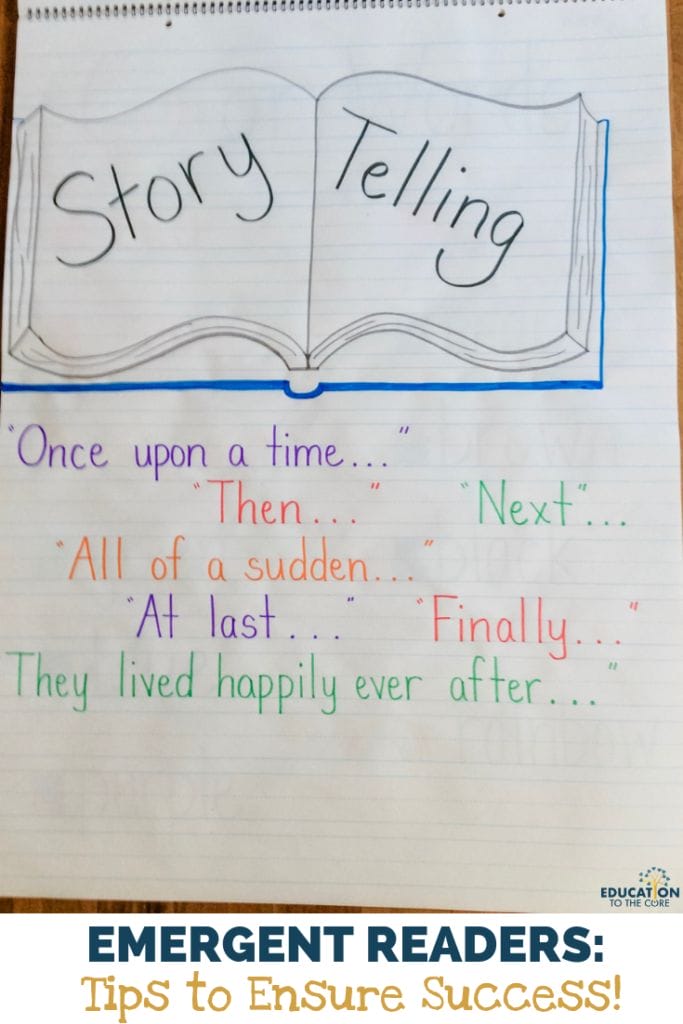 Story Telling
"Once upon a time..."
"Then..." "Next"...
"All of a sudden..."
"At last..." "Finally..."
They lived happily ever after..."
EDUCATION
TO THE CORE
EMERGENT READERS:
Tips to Ensure Success!